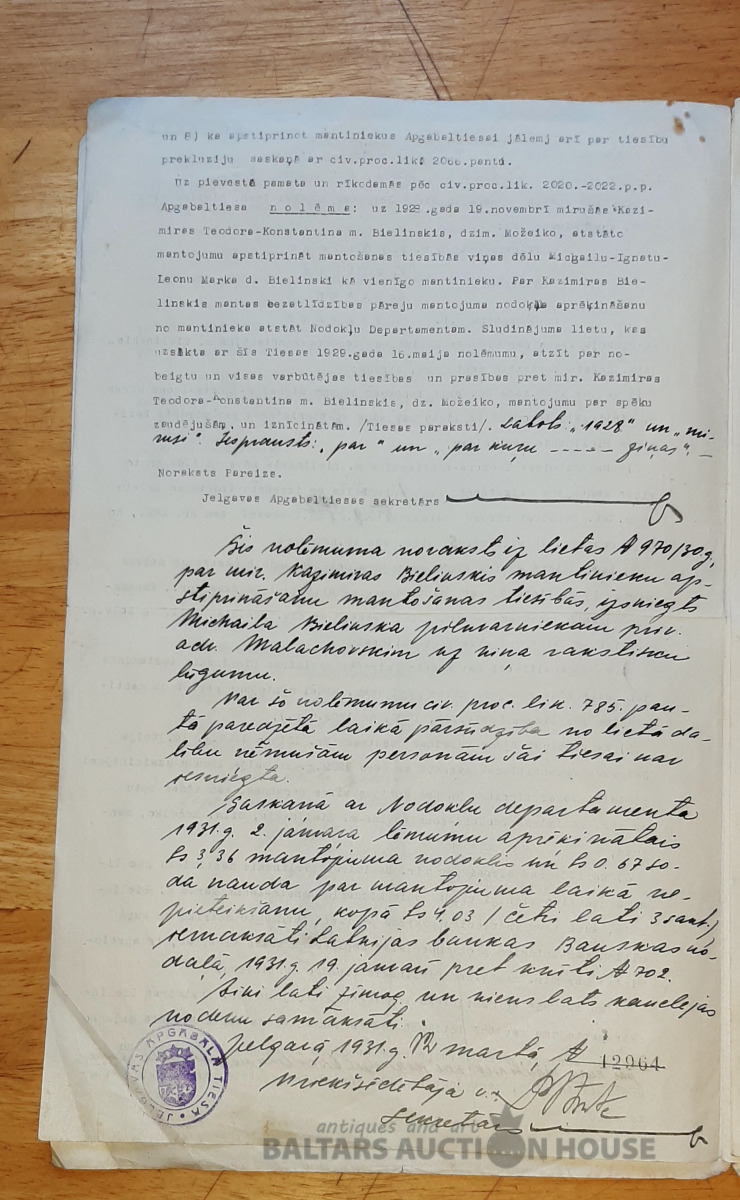 un 8) ka apstiprinot mantiniekus Apgabaltiesai jālemj arī par tiesību
prekluziju saskaņā ar civ.proc.lik. 2066.pantu.
Uz pievestā pamata un rīkodamās pēc civ.proc.lik. 2020.-2022.p.p.
Apgabaltiesa nolēma: uz 1928.gada 19.novembrī mirušās Kazi-
miras Teodora-Konstantina m. Bielinskis, dzim. Možeiko, atstāto
mantojumu apstiprināt mantošanas tiesībās viņas dēlu Michailu-Ignatu-
Leonu Marka d. Bielinski kā vienīgo mantinieku. Par Kazimiras Bie-
linskis mantas bezatlīdzības pāreju mantojuma nodokļa aprēķināšanu
no mantinieka atstāt Nodokļu Departamentam. Sludinājuma lietu, kas
uzsākta ar šīs Tiesas 1929.gada 16.maija nolēmumu, atzīt par no-
beigtu un visas varbūtējas tiesības un prasības pret mir. Kazimiras
Teodora-Konstantina m. Bielinskis, dz. Možeiko, mantojumu par spēku
zaudējušām un iznīcinātām. /Tiesas paraksti/. Labots: „1928" un „mi-
ruši". Iesprausts: „par" un „par kuru ----- ziņas". —
Noraksts Pareizs.
Jelgavas Apgabaltiesas sekretārs
Šis nolēmuma noraksts iz lietas № 970/30g.
par mir. Kazimiras Bielinskis mantinieku ap-
stiprināšanu mantošanas tiesībās, izsniegts
Michaila Bielinska pilnvarniekam priv.
adv. Malachovskim uz viņa rakstisku
lūgumu.
Par šo nolēmumu civ. proc. lik. 785. pan-
tā paredzētā laikā pārsūdzība no lietā da-
lību ņēmušām personām šai tiesai nav
iesniegta.
Saskaņā ar Nodokļu departamenta
1931.g. 2. janvara lēmumu aprēķinātais
Ls 3,36 mantojuma nodoklis un Ls 0.67 so-
da nauda par mantojuma laikā ne-
pieteikšanu, kopā Ls 4,03 / četri lati 3 sant./
iemaksāti Latvijas bankas Bauskas no-
daļā, 1931.g. 19. janvarī pret kvīti № 702.
lati zīmog un viens lats kancelejas
nodevu samaksāti.
Jelgavā, 1931.g. 12 martā, № 12964
Priekšsēdētāja v.
Sekretārs
JELGAVAS APGABALA TIESA
antiques and art
BALTARS AUCTION HOUSE